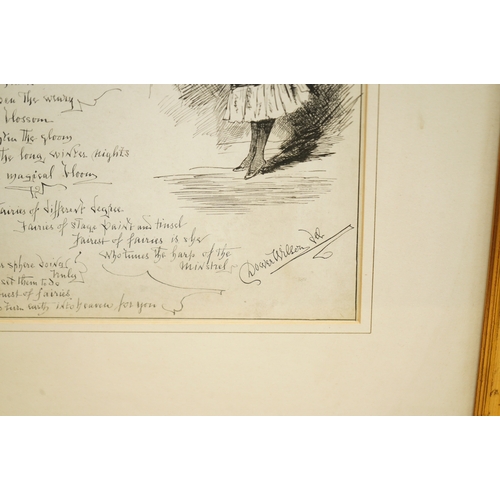 the weary
blossom
in the gloom
the long winter nights
magical bloom
Fairies of different degree
Fairies of stage paint and tinsel
Fairest of fairies is she
Who tunes the harp of the
Minstrel
sphere doing
Truly
set them to do
quest of fairies
turn earth into heaven for you
Dower Wilson Del